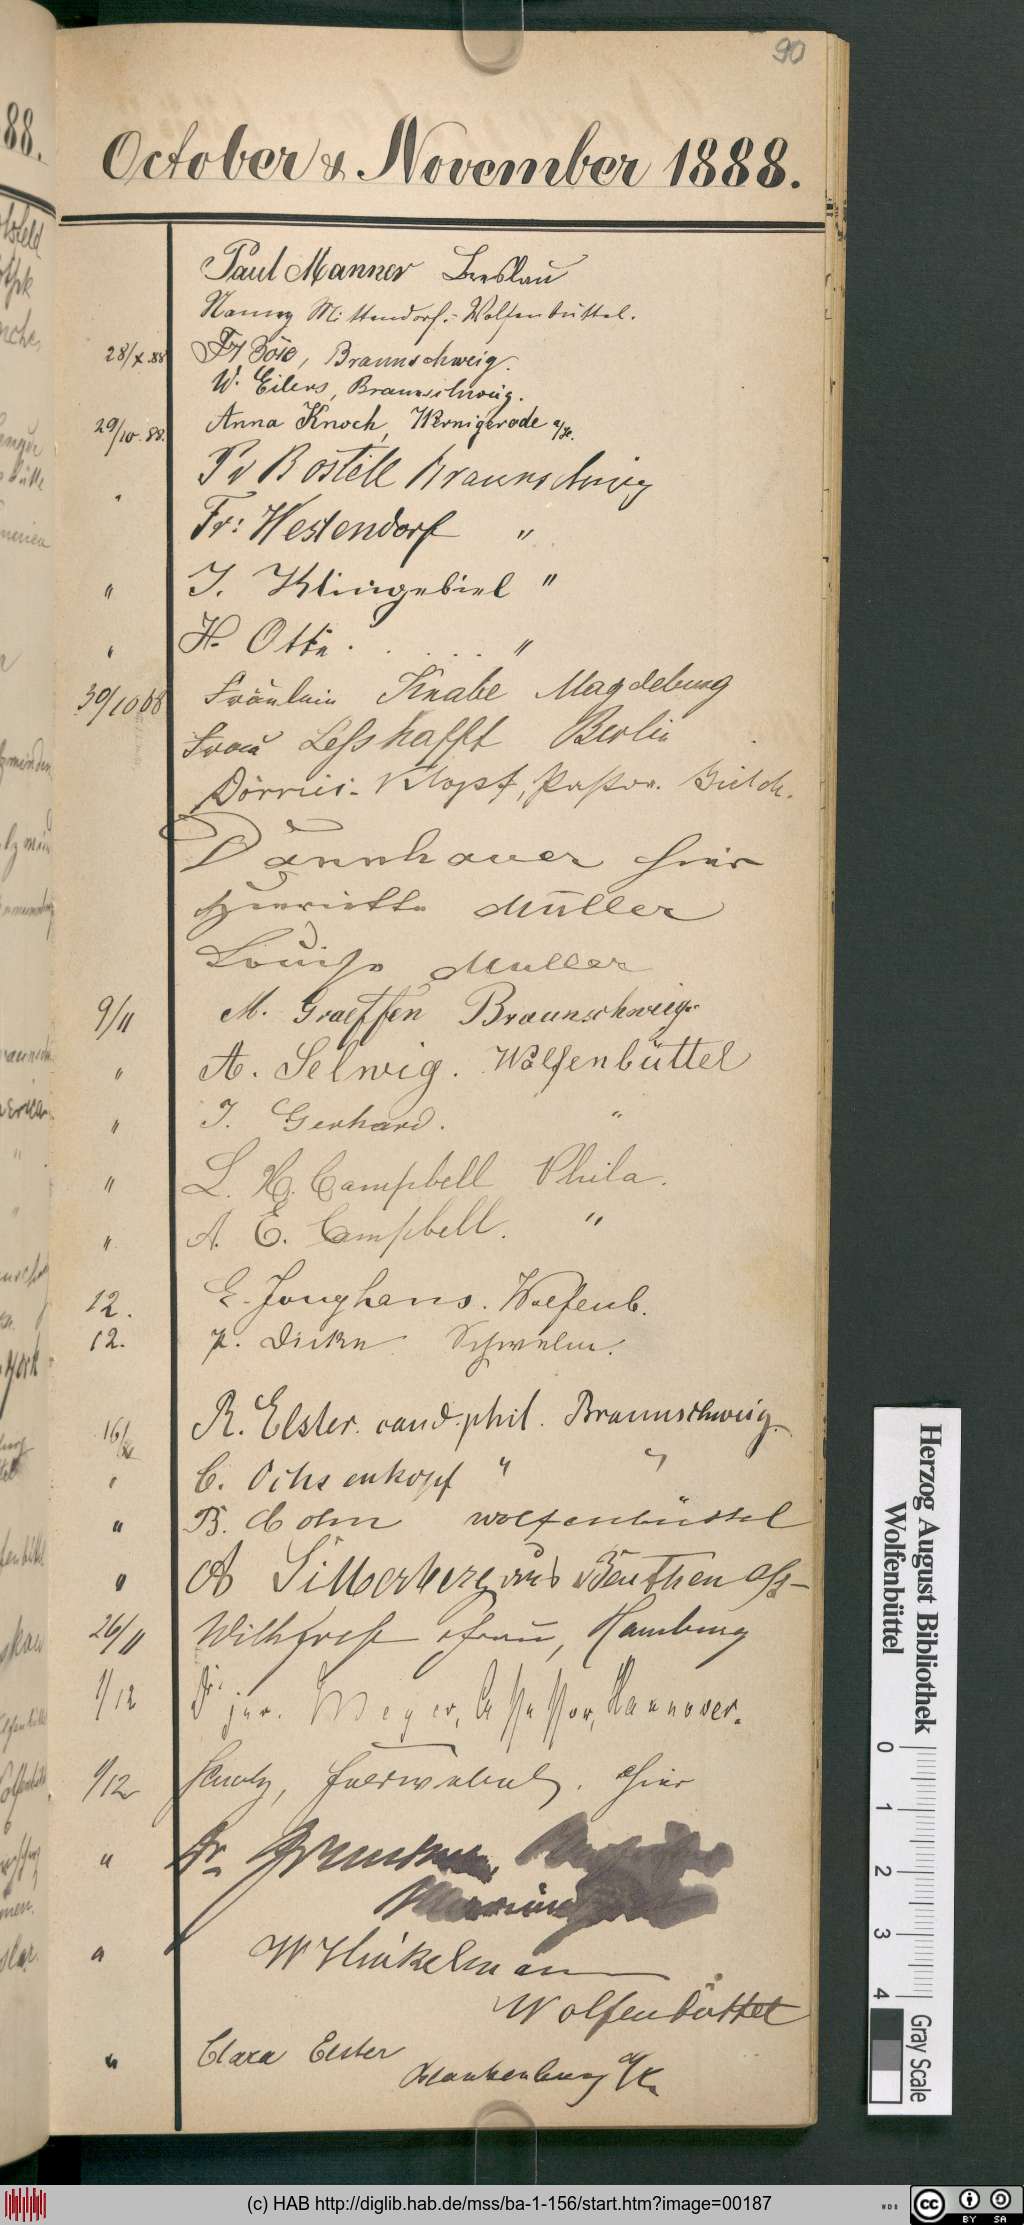 90
October & November 1888.
Paul Manner Breslau
Nanny Mittendorf.- Wolfenbüttel.
28/X.88 Fr Böse, Braunschweig.
W. Eilers, Braunschweig.
29/10.88. Anna Knoch, Wernigerode a/H.
" Bostell Braunschweig
Fr: Westendorf "
" J. Klingebiel "
" H. Otte. . . . . "
30/10 88 Fräulein Knabe Magdeburg
Frau Leßhafft Berlin
Dörries- Klopf, Pastor.
Dannhauer hier
Henriette Müller
Louise Müller
9/11 M. Graeffen Braunschweig.
" A. Selwig. Wolfenbüttel
" J. Gerhard. "
" L. H. Campbell Phila.
" A. E. Campbell. "
12. E. Junghans. Wolfenb.
12. Dicke Schwelm.
16/ R. Elster. cand. phil. Braunschweig.
" C. Ochsenkopf " "
" B. Cohn Wolfenbüttel
" A Silberberg aus Beuthen O/S-
26/11 Frau, Hamburg
1/12 Dr. jur. Meyer, Assessor, Hannover.
1/12 hier
" Dr.
" W Hinkelmann
Wolfenbüttel
" Clara Elster
Blankenburg a/H.
88.
Herzog August Bibliothek
Wolfenbüttel
0 1 2 3 4
Gray Scale
(c) HAB http://diglib.hab.de/mss/ba-1-156/start.htm?image=00187
WDB
CC BY SA